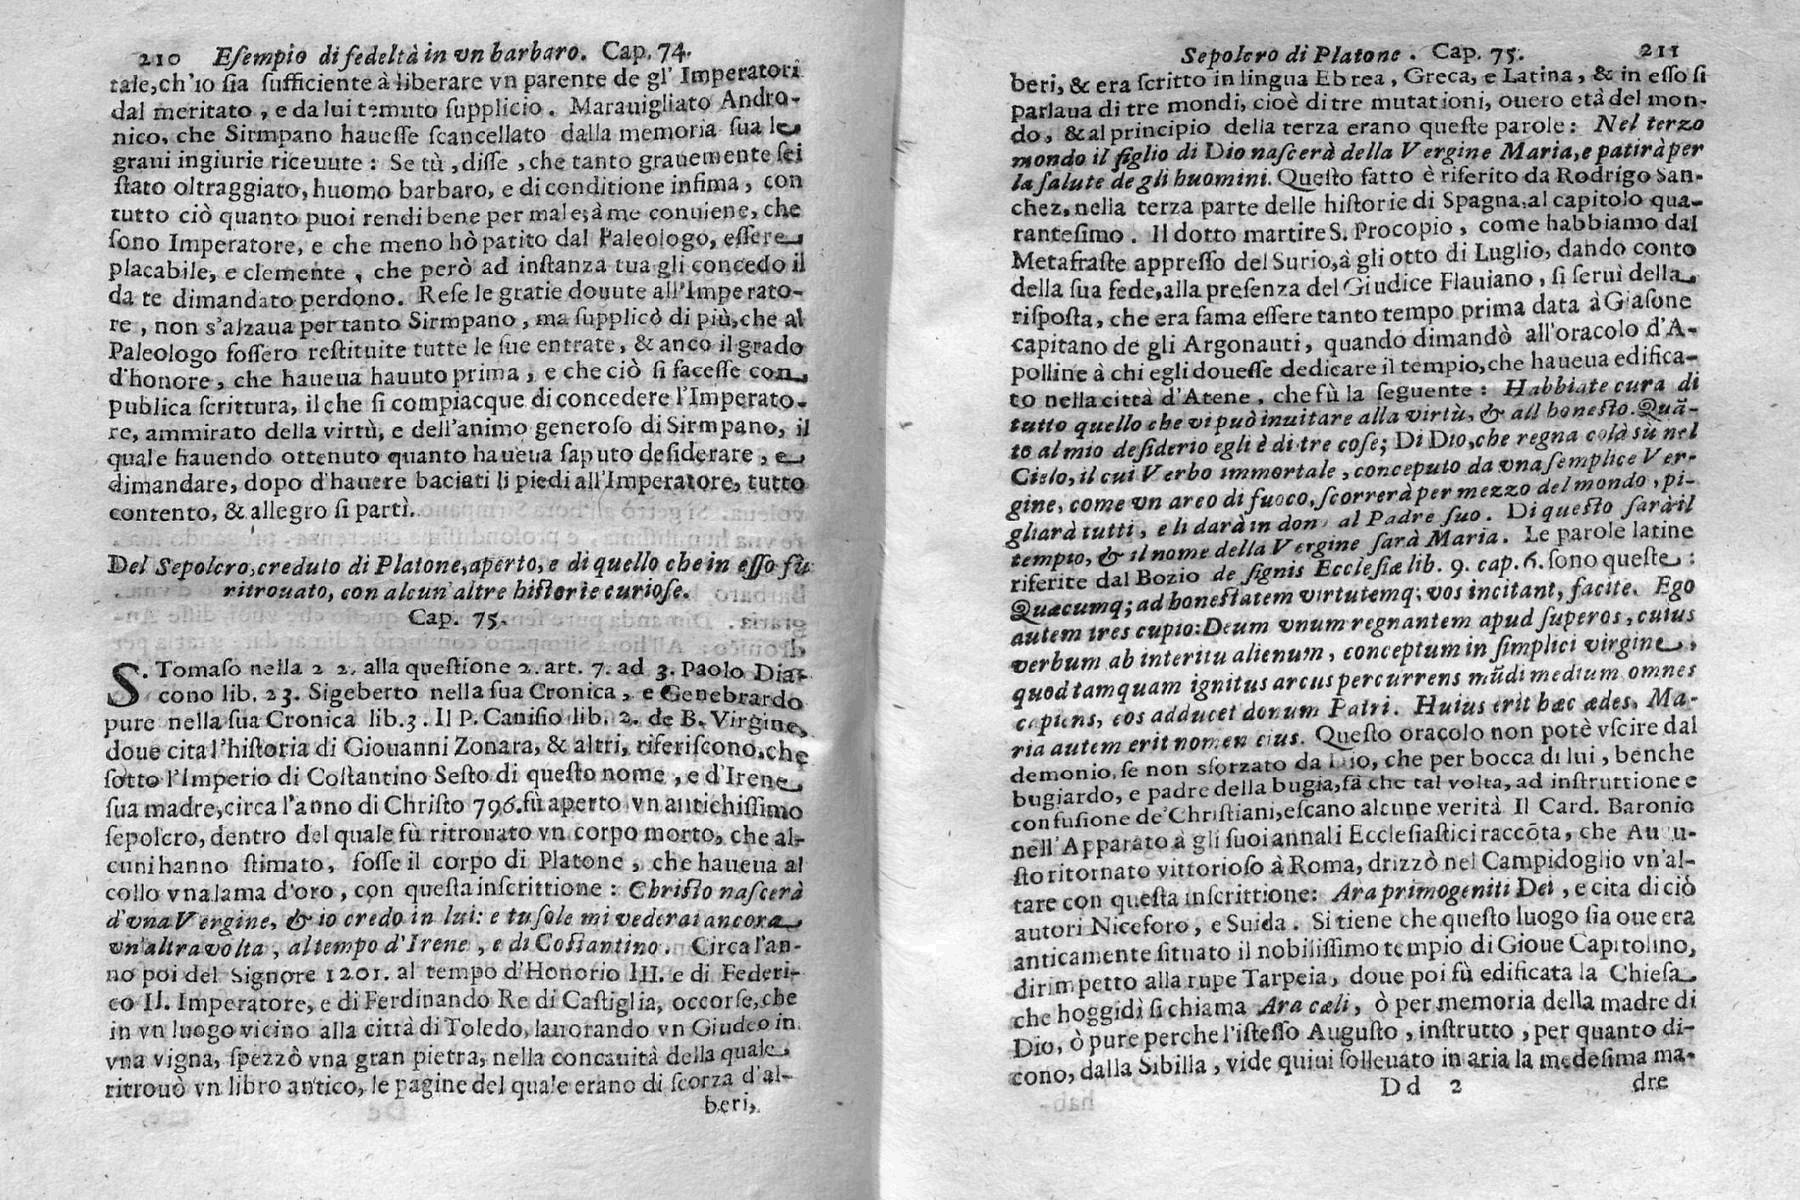 210 Eſempio di fedeltà in vn barbaro. Cap. 74.
tale, ch'io ſia ſufficiente à liberare vn parente de gl' Imperatori
dal meritato, e da lui temuto ſupplicio. Marauigliato Andro-
nico, che Sirmpano haueſſe ſcancellato dalla memoria ſua le
graui ingiurie riceuute: Se tù, diſſe, che tanto grauemente ſei
ſtato oltraggiato, huomo barbaro, e di conditione infima, con
tutto ciò quanto puoi rendi bene per male; à me conuiene, che
ſono Imperatore, e che meno hò patito dal Paleologo, eſſere
placabile, e clemente, che però ad inſtanza tua gli concedo il
da te dimandato perdono. Reſe le gratie douute all'Imperato-
re, non s'alzaua per tanto Sirmpano, ma ſupplicò di più, che al
Paleologo foſſero reſtituite tutte le ſue entrate, & anco il grado
d'honore, che haueua hauuto prima, e che ciò ſi faceſſe con
publica ſcrittura, il che ſi compiacque di concedere l'Imperato-
re, ammirato della virtù, e dell'animo generoſo di Sirmpano, il
quale hauendo ottenuto quanto haueua ſaputo deſiderare, e
dimandare, dopo d'hauere baciati li piedi all'Imperatore, tutto
contento, & allegro ſi partì.
Del Sepolcro, creduto di Platone, aperto, e di quello che in eſſo fù
ritrouato, con alcun'altre hiſtorie curioſe.
Cap. 75.
S. Tomaſo nella 2 2. alla queſtione 2. art. 7. ad 3. Paolo Dia-
cono lib. 23. Sigeberto nella ſua Cronica, e Genebrardo
pure nella ſua Cronica lib. 3. Il P. Caniſio lib. 2. de B. Virgine,
doue cita l'hiſtoria di Giouanni Zonara, & altri, riferiſcono, che
ſotto l'Imperio di Coſtantino Seſto di queſto nome, e d'Irene
ſua madre, circa l'anno di Chriſto 796. fù aperto vn antichiſſimo
ſepolcro, dentro del quale fù ritrouato vn corpo morto, che al-
cuni hanno ſtimato, foſſe il corpo di Platone, che haueua al
collo vna lama d'oro, con queſta inſcrittione: Chriſto naſcerà
d'vna Vergine, & io credo in lui: e tu ſole mi vederai ancora
vn'altra volta, al tempo d'Irene, e di Coſtantino. Circa l'an-
no poi del Signore 1201. al tempo d'Honorio III. e di Federi-
co II. Imperatore, e di Ferdinando Re di Caſtiglia, occorſe, che
in vn luogo vicino alla città di Toledo, lauorando vn Giudeo in
vna vigna, ſpezzò vna gran pietra, nella concauità della quale,
ritrouò vn libro antico, le pagine del quale erano di ſcorza d'al-
beri,
Sepolcro di Platone. Cap. 75. 211
beri, & era ſcritto in lingua Ebrea, Greca, e Latina, & in eſſo ſi
parlaua di tre mondi, cioè di tre mutationi, ouero età del mon-
do, & al principio della terza erano queſte parole: Nel terzo
mondo il figlio di Dio naſcerà della Vergine Maria, e patirà per
la ſalute de gli huomini. Queſto fatto è riferito da Rodrigo San-
chez, nella terza parte delle hiſtorie di Spagna, al capitolo qua-
rantesimo. Il dotto martire S. Procopio, come habbiamo dal
Metafraſte appreſſo del Surio, à gli otto di Luglio, dando conto
della ſua fede, alla preſenza del Giudice Flauiano, ſi ſeruì della
riſpoſta, che era fama eſſere tanto tempo prima data à Giaſone
capitano de gli Argonauti, quando dimandò all'oracolo d'A-
polline à chi egli doueſſe dedicare il tempio, che haueua edifica-
to nella città d'Atene, che fù la ſeguente: Habbiate cura di
tutto quello che vi può inuitare alla virtù, & all honeſto. Quā-
to al mio deſiderio egli è di tre coſe; Di Dio, che regna colà sù nel
Cielo, il cui Verbo immortale, conceputo da vna ſemplice Ver-
gine, come vn arco di fuoco, ſcorrerà per mezzo del mondo, pi-
gliarà tutti, e li darà in don al Padre ſuo. Di queſto ſarà il
tempio, & il nome della Vergine ſarà Maria. Le parole latine
riferite dal Bozio de ſignis Eccleſiæ lib. 9. cap. 6. ſono queſte:
Quæcumq; ad honeſtatem virtutemq; vos incitant, facite. Ego
autem tres cupio: Deum vnum regnantem apud ſuperos, cuius
verbum ab interitu alienum, conceptum in ſimplici virgine,
quod tamquam ignitus arcus percurrens mūdi medium omnes
capiens, eos adducet donum Patri. Huius erit hæc ædes. Ma-
ria autem erit nomen eius. Queſto oracolo non potè vſcire dal
demonio, ſe non sforzato da Dio, che per bocca di lui, benche
bugiardo, e padre della bugia, fà che tal volta, ad inſtruttione e
confuſione de' Chriſtiani, eſcano alcune verità Il Card. Baronio
nell'Apparato à gli ſuoi annali Eccleſiaſtici raccōta, che Auguſ-
ſto ritornato vittorioſo à Roma, drizzò nel Campidoglio vn'al-
tare con queſta inſcrittione: Ara primogeniti Dei, e cita di ciò
autori Niceforo, e Suida. Si tiene che queſto luogo ſia oue era
anticamente ſituato il nobiliſſimo tempio di Gioue Capitolino,
dirimpetto alla rupe Tarpeia, doue poi fù edificata la Chieſa
che hoggidì ſi chiama Ara cæli, ò per memoria della madre di
Dio, ò pure perche l'iſteſſo Auguſto, inſtrutto, per quanto di-
cono, dalla Sibilla, vide quiui ſolleuato in aria la medeſima ma-
Dd 2 dre